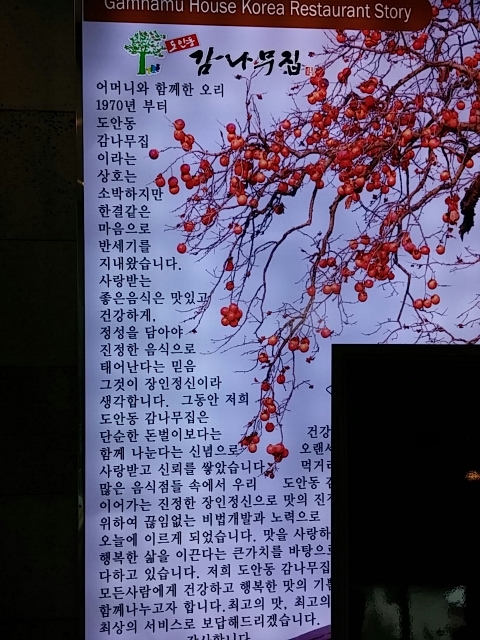 Gamnamu House Korea Restaurant Story
도안동 감나무집
어머니와 함께한 오리
1970년 부터
도안동
감나무집
이라는
상호는
소박하지만
한결같은
마음으로
반세기를
지내왔습니다.
사랑받는
좋은음식은 맛있고
건강하게,
정성을 담아야
진정한 음식으로
태어난다는 믿음
그것이 장인정신이라
생각합니다. 그동안 저희
도안동 감나무집은
단순한 돈벌이보다는 건강
함께 나눈다는 신념으로
사랑받고 신뢰를 쌓았습니다. 먹거리
많은 음식점들 속에서 우리 도안동
이어가는 진정한 장인정신으로 맛의
위하여 끊임없는 비법개발과 노력으로
오늘에 이르게 되었습니다. 맛을 사랑하
행복한 삶을 이끈다는 큰가치를 바탕으로
다하고 있습니다. 저희 도안동 감나무집
모든사람에게 건강하고 행복한 맛의
함께나누고자 합니다.최고의 맛, 최고의
최상의 서비스로 보답해드리겠습니다.
감사합니다